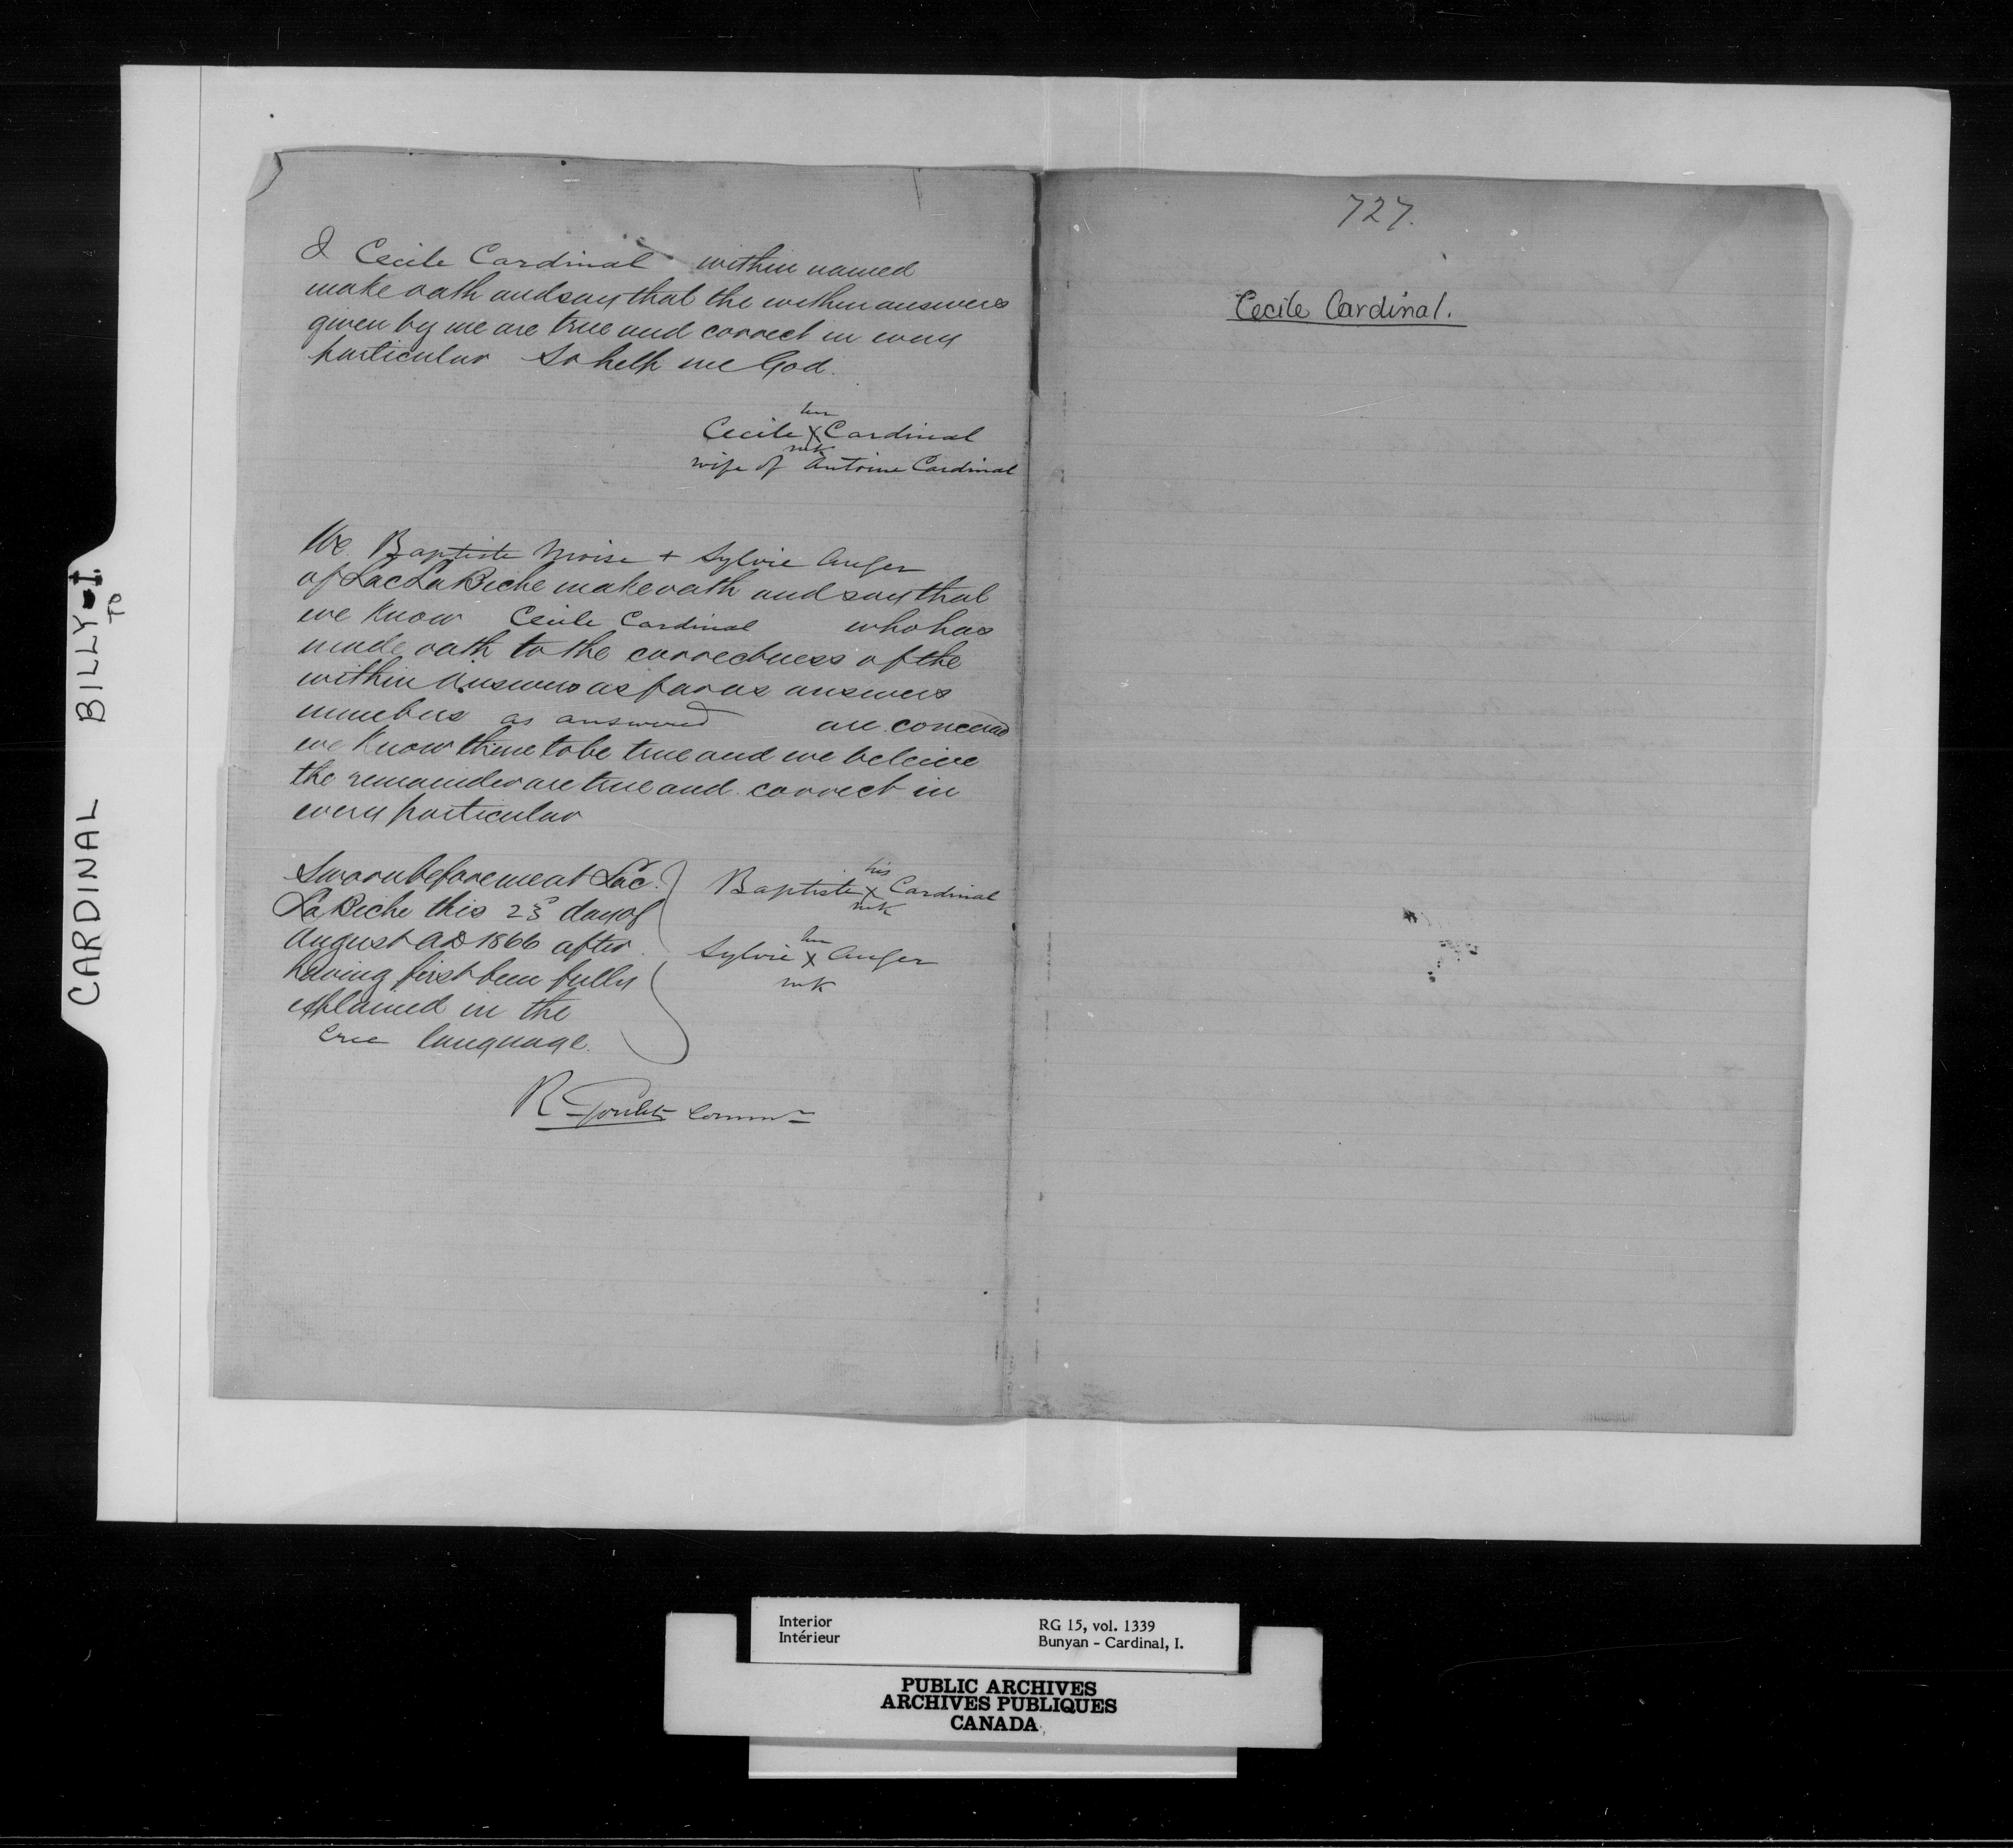 CARDINAL BILLY - I.
TO
I Cecile Cardinal within named
make oath and say that the within answers
given by me are true and correct in every
particular So help me God.
her
Cecile X Cardinal
mk
wife of Antoine Cardinal
We Baptiste Moise + Sylvie Auger
of Lac La Biche make oath and say that
we Know Cecile Cardinal who has
made oath to the correctness of the
within Answers as far as answers
numbers as answered are concerned
we Know them to be true and we beleive
the remainder are true and correct in
every particular
Sworn before me at Lac
La Biche this 23 day of
August AD 1866 after
having first been fully
explained in the
Cree language.
his
Baptiste X Cardinal
mk
her
Sylvie X Auger
mk
R Goulet Commr
727.
Cecile Cardinal.
Interior
Intérieur
RG 15, vol. 1339
Bunyan - Cardinal, I.
PUBLIC ARCHIVES
ARCHIVES PUBLIQUES
CANADA